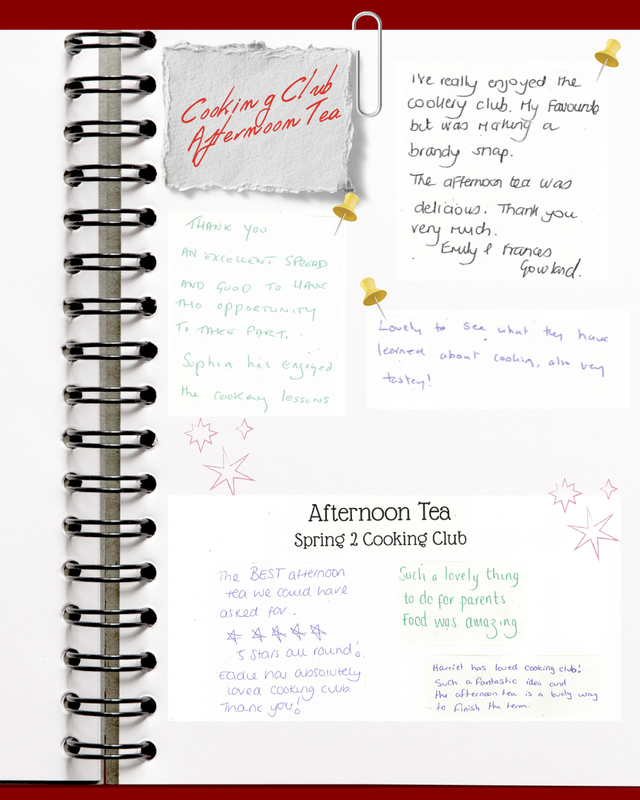 Cooking Club
Afternoon Tea
I've really enjoyed the
cookery club. My Favourite
bit was making a
brandy snap.
The afternoon tea was
delicious. Thank you
very much.
Emily & Frances
Gowland.
THANK YOU
AN EXCELLENT SPREAD
AND GOOD TO HAVE
THE OPPORTUNITY
TO TAKE PART.
Sophia has enjoyed
the cookery lessons
Lovely to see what they have
learned about cooking, also very
tastey!
Afternoon Tea
Spring 2 Cooking Club
The BEST afternoon
tea we could have
asked for.
5 Stars all round!
Eadie has absolutely
loved cooking club.
Thank you!
Such a lovely thing
to do for parents
Food was amazing
Harriet has loved cooking club!
Such a fantastic idea and
the afternoon tea is a lovely way
to finish the term.